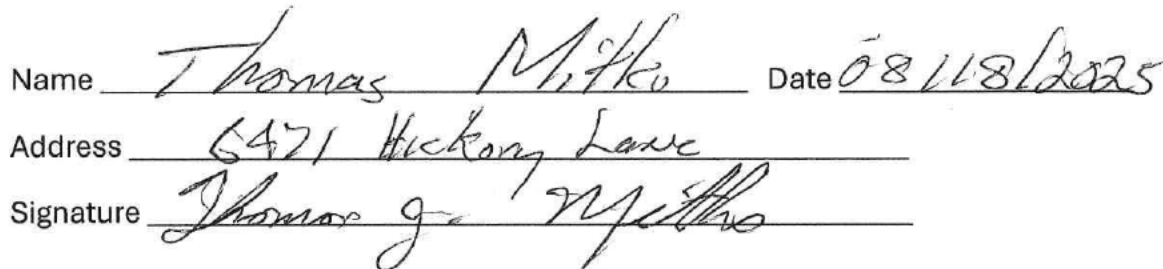 Name Thomas Mitko Date 08/18/2025
Address 6471 Hickory Lane
Signature Thomas J. Mitko